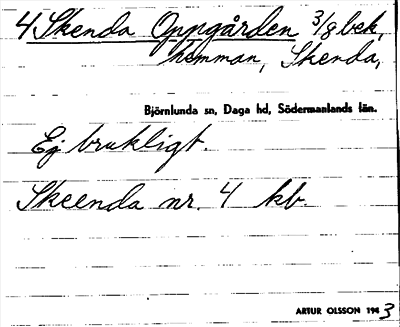 4 Skenda Oppgården 3/8 bek,
hemman, Skenda,
Björnlunda sn, Daga hd, Södermanlands län.
Ej brukligt.
Skeenda nr. 4 kb.
ARTUR OLSSON 1943